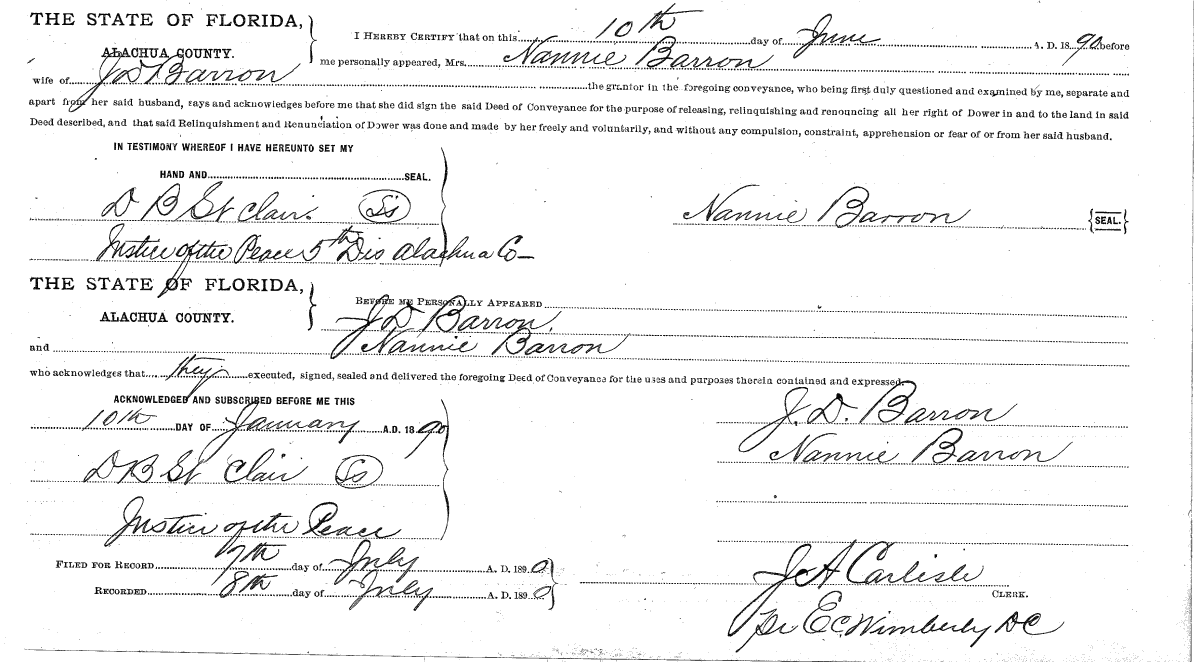 THE STATE OF FLORIDA,
ALACHUA COUNTY.
I HEREBY CERTIFY that on this 10th day of June A. D. 1890 before
me personally appeared, Mrs. Nannie Barron
wife of J D Barron the grantor in the foregoing conveyance, who being first duly questioned and examined by me, separate and
apart from her said husband, says and acknowledges before me that she did sign the said Deed of Conveyance for the purpose of releasing, relinquishing and renouncing all her right of Dower in and to the land in said
Deed described, and that said Relinquishment and Renunciation of Dower was done and made by her freely and voluntarily, and without any compulsion, constraint, apprehension or fear of or from her said husband.
IN TESTIMONY WHEREOF I HAVE HEREUNTO SET MY
HAND AND SEAL.
D B St Clair Ss
Nannie Barron {SEAL.}
Justice of the Peace 5th Dis Alachua Co
THE STATE OF FLORIDA,
ALACHUA COUNTY.
BEFORE ME PERSONALLY APPEARED
J D Barron.
and Nannie Barron
who acknowledges that they executed, signed, sealed and delivered the foregoing Deed of Conveyance for the uses and purposes therein contained and expressed.
ACKNOWLEDGED AND SUBSCRIBED BEFORE ME THIS
10th DAY OF January A.D. 1890
J. D. Barron
Nannie Barron
D B St Clair Ss
Justice of the Peace
FILED FOR RECORD 7th day of July A. D. 1890
RECORDED 8th day of July A. D. 1890
J A Carlisle
CLERK.
Pr E C Wimberly DC